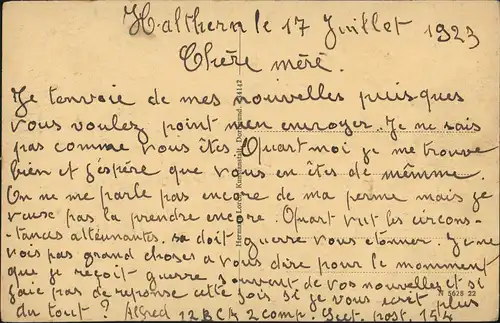 Halthern le 17 Juillet 1923
Chére méré.
Je t'envoie de mes nouvelles puisques
vous voulez point m'en envoyer. Je ne sais
pas comme vous êtes. Quart moi je me trouve
bien et j'éspére que vous en êtes de mêmme.
On ne me parle pas encore de ma perme mais je
veuse pas la prendre encore. Quart vut les circons-
tances alteunantes. sa doit guerre vous étonner. Je ne
vois pas grand choses a vous dire pour le momment
que je reçoit guerre souvent de vos nouvelles et si
j'aie pas de reponse cette fois si je vous ecrit plus
du tout? Alfred 12 B.C.A 2 comp. Sect. post. 154
N 5628 22